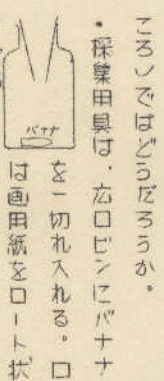 ころ)ではどうだろうか。
・採集用具は、広口ビンにバナナ
を一切れ入れる。口
は画用紙をロート状
バナナ